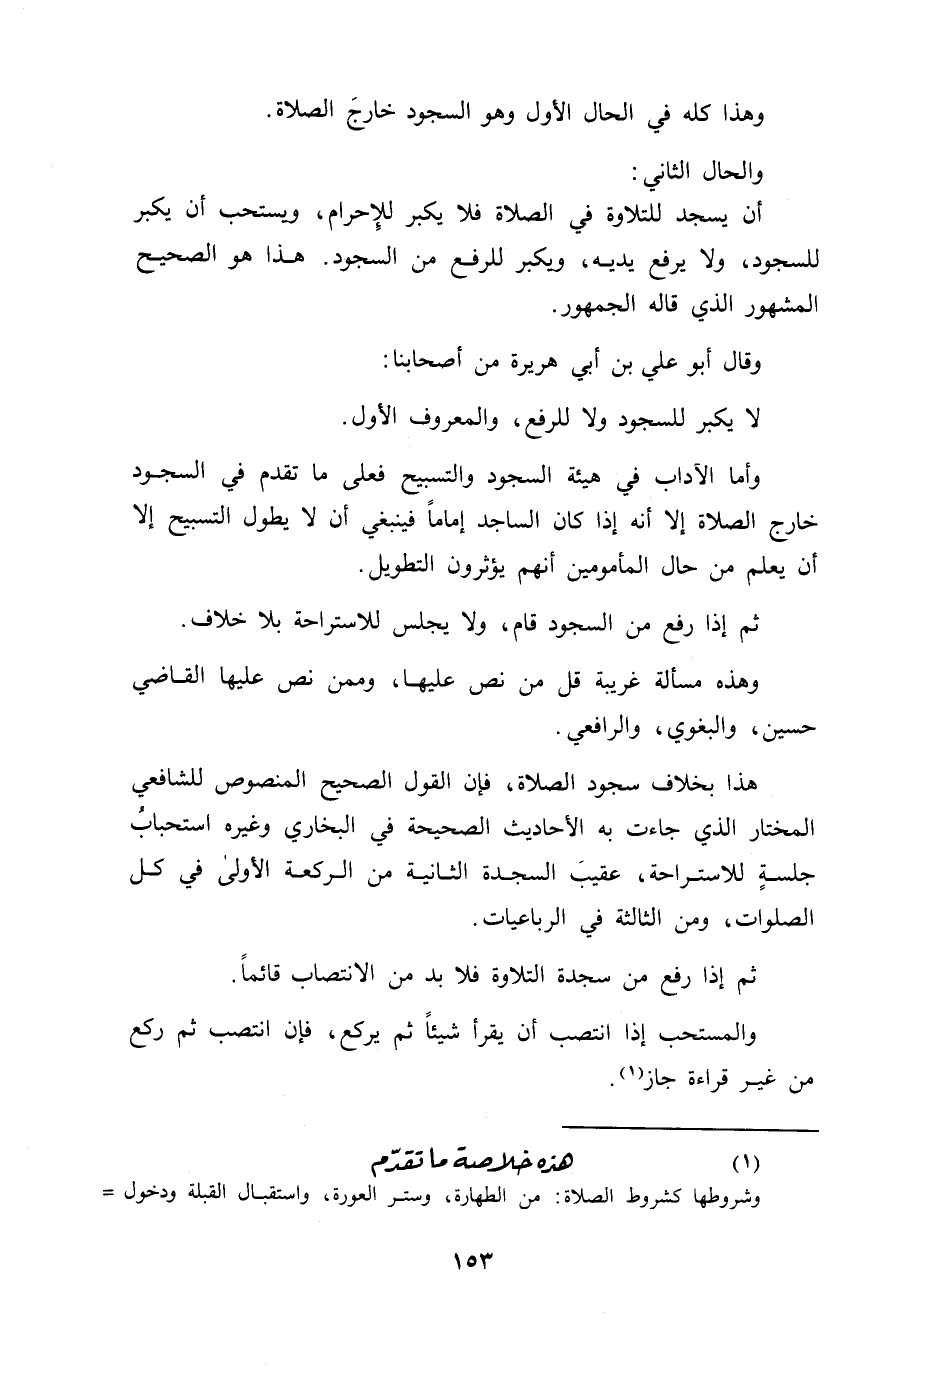 وهذا كله في الحال الأول وهو السجود خارجَ الصلاة.
والحال الثاني:
أن يسجد للتلاوة في الصلاة فلا يكبر للإحرام، ويستحب أن يكبر
للسجود، ولا يرفع يديه، ويكبر للرفع من السجود. هذا هو الصحيح
المشهور الذي قاله الجمهور.
وقال أبو علي بن أبي هريرة من أصحابنا:
لا يكبر للسجود ولا للرفع، والمعروف الأول.
وأما الآداب في هيئة السجود والتسبيح فعلى ما تقدم في السجود
خارج الصلاة إلا أنه إذا كان الساجد إماماً فينبغي أن لا يطول التسبيح إلا
أن يعلم من حال المأمومين أنهم يؤثرون التطويل.
ثم إذا رفع من السجود قام، ولا يجلس للاستراحة بلا خلاف.
وهذه مسألة غريبة قل من نص عليها، وممن نص عليها القاضي
حسين، والبغوي، والرافعي.
هذا بخلاف سجود الصلاة، فإن القول الصحيح المنصوص للشافعي
المختار الذي جاءت به الأحاديث الصحيحة في البخاري وغيره استحبابُ
جلسةٍ للاستراحة، عقيبَ السجدة الثانية من الركعة الأولىٰ في كل
الصلوات، ومن الثالثة في الرباعيات.
ثم إذا رفع من سجدة التلاوة فلا بد من الانتصاب قائماً.
والمستحب إذا انتصب أن يقرأ شيئاً ثم يركع، فإن انتصب ثم ركع
من غير قراءة جاز(١).
(١) هذه خلاصة ما تقدّم
وشروطها كشروط الصلاة: من الطهارة، وستر العورة، واستقبال القبلة ودخول =
١٥٣